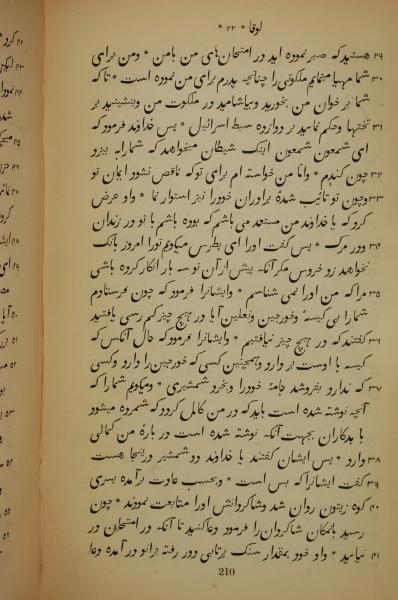 لوقا * ۲۲ *
۲۹ هستید که صبر نموده اید در امتحان‌های من با من * و من برای
۳۰ شما مهیا مینمایم ملکوتی را چنانچه پدرم برای من نموده است * تا که
شما بر خوان من بخورید و بیاشامید در ملکوت من و بنشینید بر
۳۱ تختها و حکم نمایید بر دوازده سبط اسرائیل * پس خداوند فرمود که
ای شمعون شمعون اینک شیطان میخواهد که شما را به بیزد
۳۲ چون گندم * و انا من خواسته ام برای تو که ناقص نشود ایمان تو
۳۳ و چون تو تائیب شدهٔ براوران خود را نیز استوار نما * و او عرض
کرد که یا خداوند من مستعد می باشم که بوده باشم با تو در زندان
۳۴ و در مرک * پس گفت اورا ای پطرس میگویم تورا امروز بانک
نخواهد زد خروس مکر آنکه پیش از آن تو سه بار انکار کرده باشی
۳۵ مرا که من اورا نمی شناسم * و ایشانرا فرمود که چون فرستادم
شما را بی کیسهٔ و خورجین و نعلین آیا در هیچ چیز کم رسی یافتید
۳۶ گفتند که در هیچ چیز نیافتیم * و ایشانرا فرمود که حال آنکس که
کیسه با اوست بر دارد و همچنین کسی که خورجین را دارد و کسی
۳۷ که ندارد بفروشد جامهٔ خود را و بخرد شمشیری * و میکویم شما را که
آنچه نوشته شده است باید که در من کامل گردد که شمرده میشود
با بدکاران بجهت آنکه نوشته شده است در بارهٔ من کمالی
۳۸ دارد * پس ایشان گفتند یا خداوند دو شمشیر در اینجا هست
۳۹ گفت ایشانرا که بس است * و بحسب عادت بر آمده بسوی
۴۰ کوه زیتون روان شد و شاکردانش اورا متابعت نمودند * چون
رسید بانمکان شاکردان را فرمود دعا کنید تا آنکه در امتحان در
۴۱ نیایید * و او خود بمقدار سنک پرتابی دور رفته بزانو در آمده دعا
210